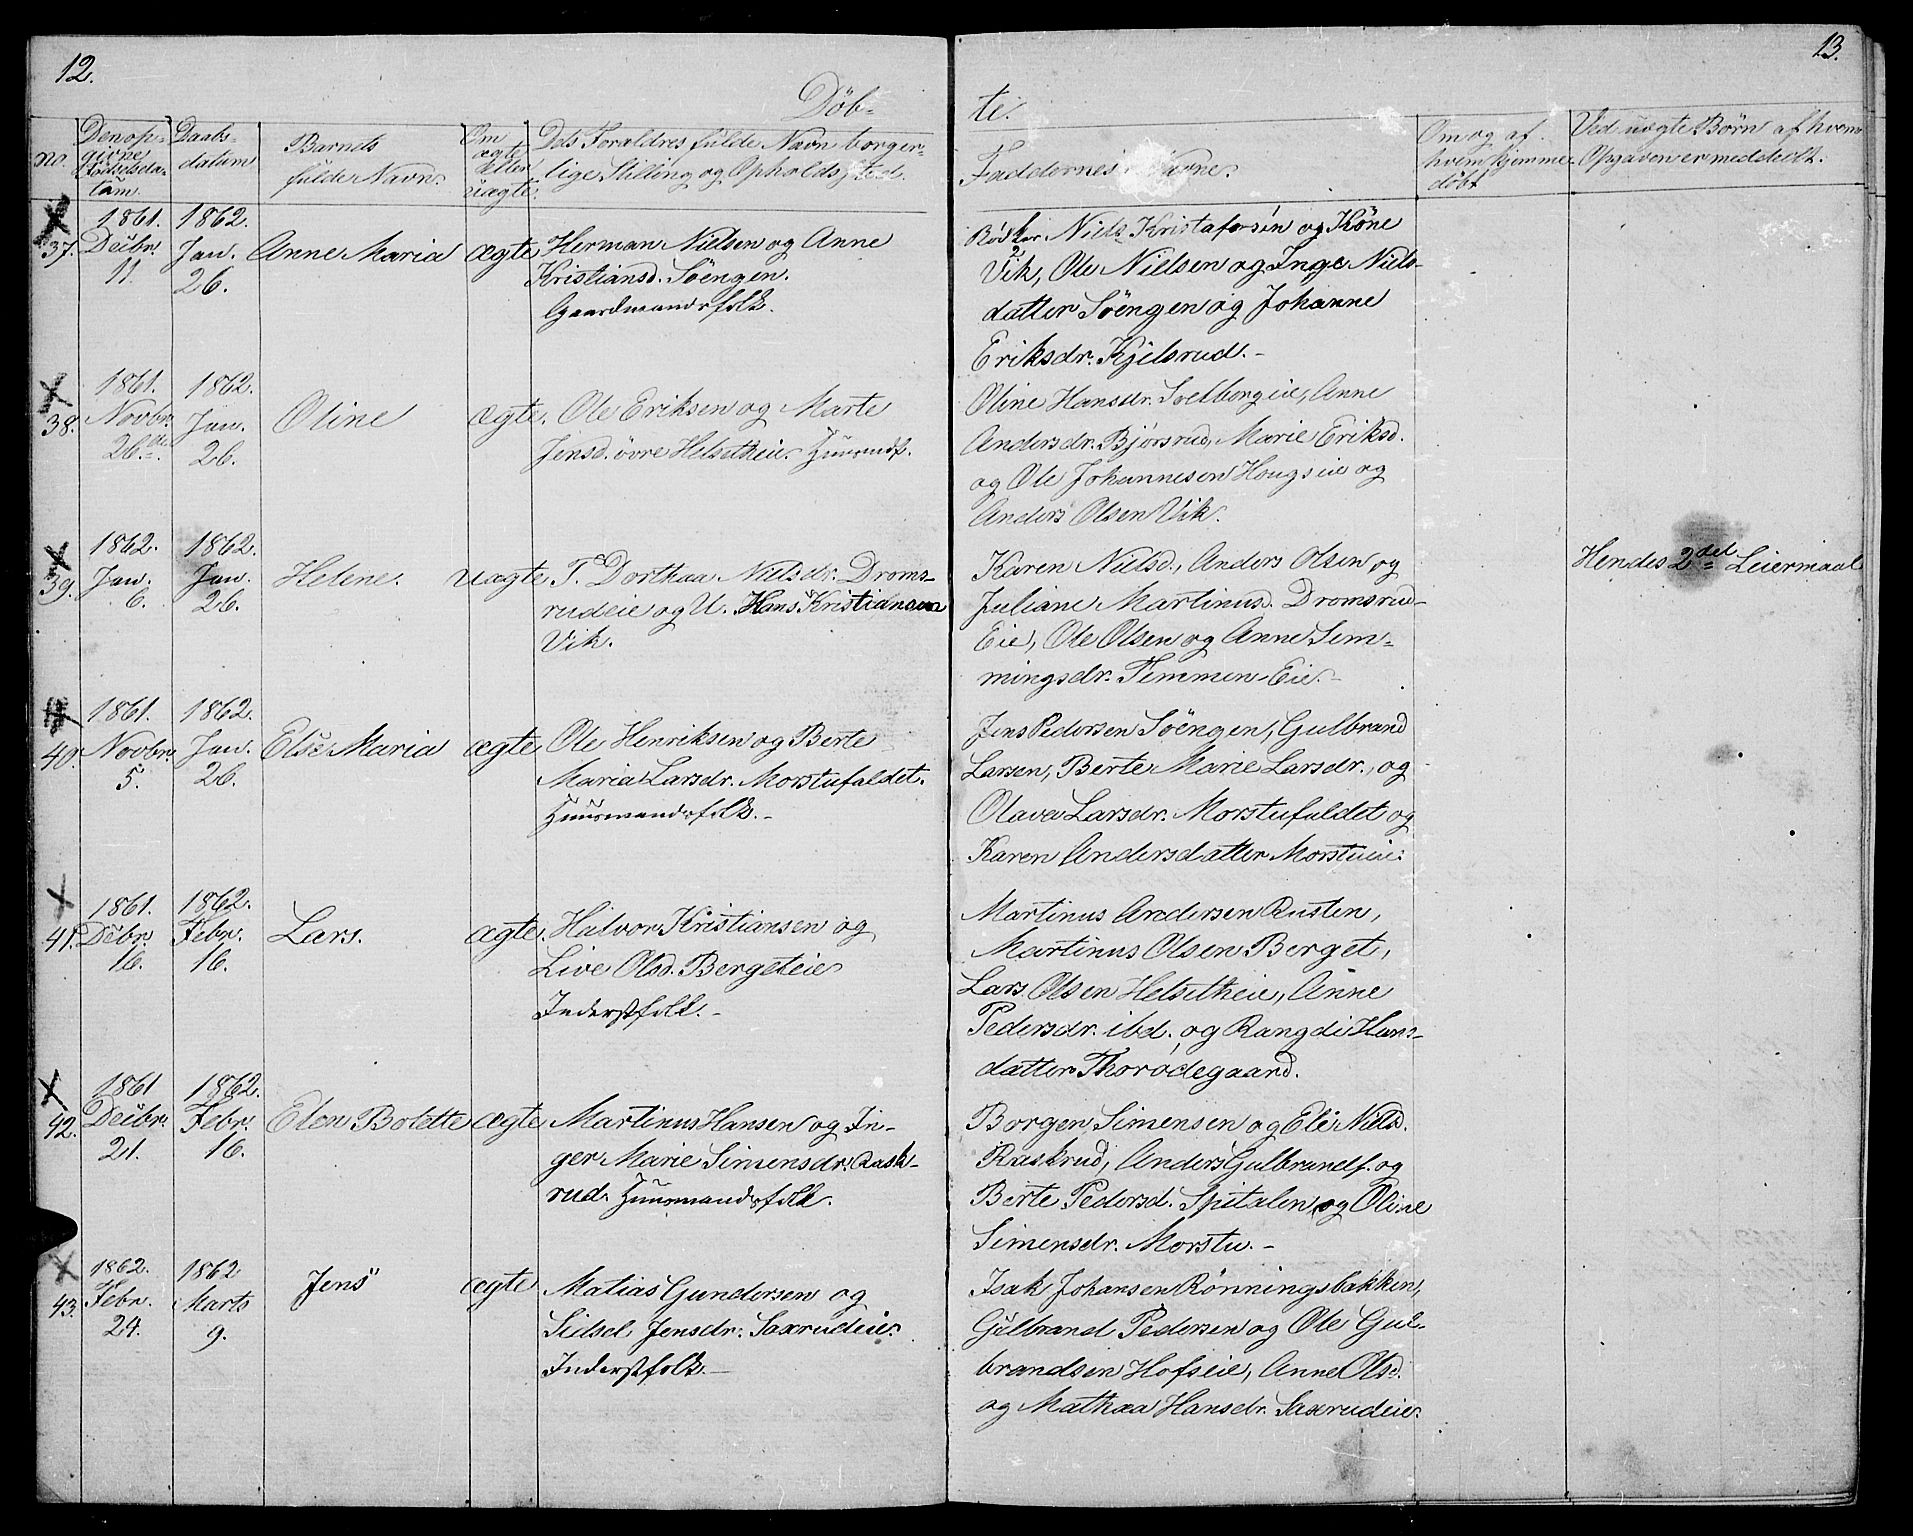 12.
Döb-
no.
Den op-
givne
Födselsda-
tum.
Daabs-
datum
Barnets
fulde Navn.
Om
ægte
eller
uægte.
Dets Foraldres fulde Navn borger-
lige Stilling og Opholdssted.
37.
1861.
Decbr.
11.
1862.
Jan.
26.
Anne Maria
ægte
Herman Nielsen og Anne
Kristiansd. Söengen.
Gaardmandsfolk.
38.
1861.
Novbr.
26.de
1862.
Jan.
26.
Oline
ægte.
Ole Eriksen og Marte
Jensd. övre Helsetheie. Huusmdf.
39.
1862.
Jan.
6.
1862.
Jan.
26.
Helene.
uægte
P. Dorthea Nielsdr. Droms-
rudeie og U. Hans Kristiansen
Vik.
40.
1861.
Novbr.
5.
1862.
Jan.
26.
Else Maria
ægte
Ole Henriksen og Berte
Maria Larsdr. Morstufaldet.
Huusmandsfolk.-
41.
1861.
Debr.
16.
1862.
Febr.
16.
Lars.
ægte.
Halvor Kristiansen og
Live Olsd. Bergeteie
Inderstfolk.-
42.
1861
Decbr.
21.
1862.
Febr.
16.
Elen Bolette
ægte
Martinus Hansen og In-
ger Marie Simensdr. Rask-
rud. Huusmandsfolk.
43.
1862.
Febr.
24.
1862
Marts
9.
Jens
ægte
Matias Gundersen og
Sidsel Jensdr. Saxrudeie.
Inderstfolk.-
13.
te.
Faddernes Navne.
Om og af
hvem hjemme
döbt,
Ved uægte Børn af hvem
Opgaven er meddeelt.
Niels Kristofersen og Kone
Vik, Ole Nielsen og Inge Niels-
datter Söengen og Johanne
Eriksdr. Kjelsrud.-
Oline Hansdr. Solborgeie, Anne
Andersdr. Bjørsrud, Marie Eriksd.
og Ole Johannesen Hougseie og
Anders Olsen Vik.
Karen Nielsd., Anders Olsen og
Juliane Martinusd. Dromsrud-
Eie, Ole Olsen og Anne Sem-
mingsdr. Temmen-Eie.-
Hendes 2det Leiermaal
Jens Pedersen Söengen, Gulbrand
Larsen, Berte Marie Larsdr., og
Olava Larsdr. Morstufaldet og
Karen Andersdatter Morstueie.
Martinus Andersen Rusten,
Martinus Olsen Berget,
Lars Olsen Helsetheie, Anne
Pedersdr. ibd. og Rangdi Hans-
datter Thorödegaard.
Borgen Simensen og Eli Nielsd.
Raskrud, Anders Gulbrands. og
Berte Pedersd. Spitalen og Oline
Simensdr. Morstu.-
Isak Johansen Rönningsbakken,
Gulbrand Pedersen og Ole Gul-
brandsen Hofseie, Anne Olsd.
og Mathea Hansdr. Saxrudeie.